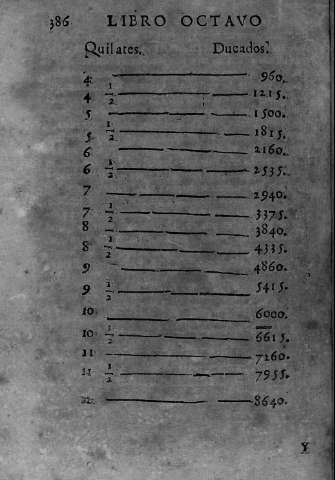 386 LIBRO OCTAVO
Quilates. Ducados.
4 960.
4 1/2 1215.
5 1500.
5 1/2 1815.
6 2160.
6 1/2 2535.
7 2940.
7 1/2 3375.
8 3840.
8 1/2 4335.
9 4860.
9 1/2 5415.
10 6000.
10 1/2 6615.
11 7260.
11 1/2 7955.
12 8640.
Y